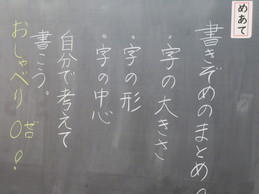 めあて
書きぞめのまとめの
・字の大きさ
・字の形
・字の中心
自分で考えて
書こう。
おしゃべり0ゼロ!